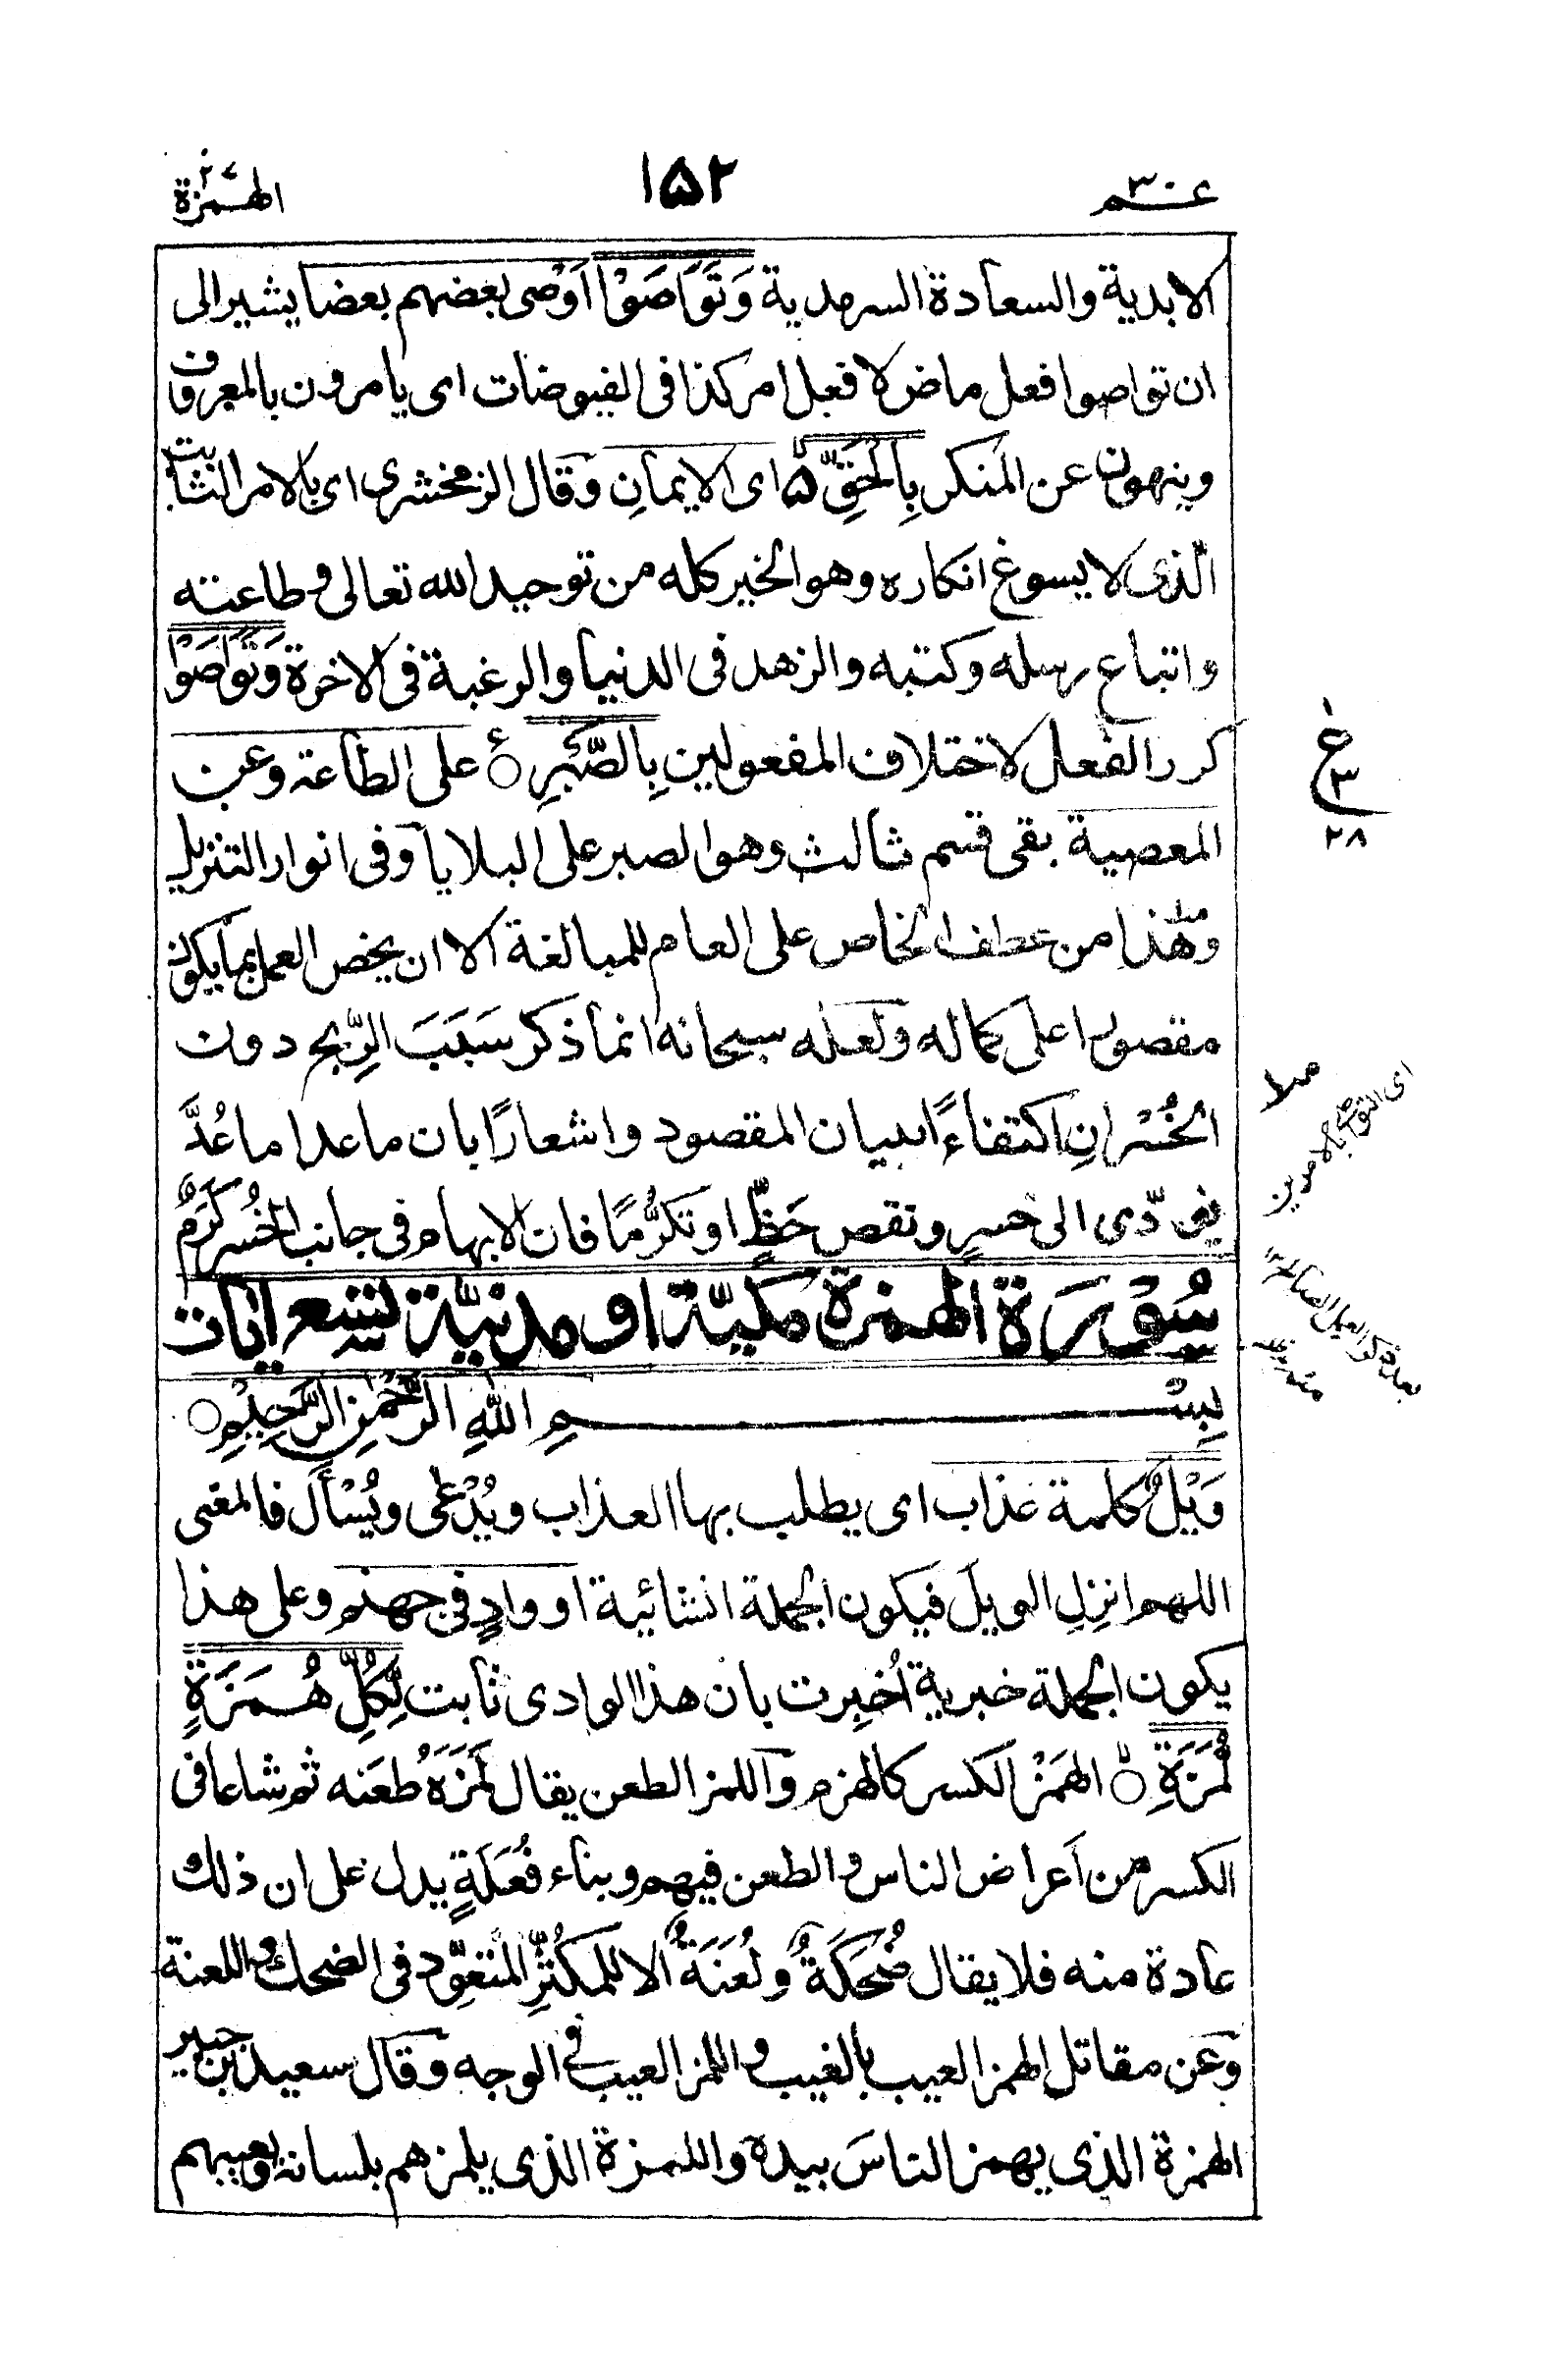 عم ٣٠
١٥٢
الهمزة
الابدية والسعادة السرمدية وَتَوَاصَوْا اَوْصى بعضهم بعضا يشير الى
ان تواصوا فعل ماض لا فعل امر كذا فى الفيوضات اى يامرون بالمعروف
وينهون عن المنكر بِالْحَقِّ ۵ اى الايمانِ وقال الزمخشرى اى بالامر الثابت
الّذى لا يسوغ انكاره وهو الخير كله من توحيد الله تعالى وطاعته
واتباع رسله وكتبه والزهد فى الدنيا والرغبة فى الاخرة وَتَوَاصَوْا
كرر الفعل لاختلاف المفعولين بِالصَّبْرِ ○ على الطاعة وعن
المعصية بقى قسم ثالث وهو الصبر على البلايا وفى انوار التنزيل
وهٰذا من عطف الخاص على العام للمبالغة الا ان يخص العمل بما يكون
مقصورا على كماله ولعله سبحانه انما ذكر سَبَبَ الرِّبح دون
الخُسْرانِ اكتفاءً ببيان المقصود واشعارًا بان ما عدا ما عُدَّ
يؤدّى الى خسرٍ ونقص حَظٍّ او تكرُّمًا فان الابهام فى جانب الخُسر كَرَمٌ
ع
٣
٢٨
اى التواصى بالامرين
بعد ذكر العمل الصالح
سُوْرَة الهمزة مكيّة او مدنيّة تسع ايات
بِسْمِ اللهِ الرَّحْمٰنِ الرَّحِيْمِ ○
وَيْلٌ كلمة عذاب اى يطلب بها العذاب ويُدْعٰى ويُسْأَل فالمعنى
اللهم انزِلِ الويلَ فيكون الجملة انشائية او وادٍ فى جهنم وعلى هذا
يكون الجملة خبرية اُخبِرت بان هذا الوادى ثابت لِّكُلِّ هُمَزَةٍ
لُّمَزَةِ ○ الهَمْزُ الكسر كالهزم واللمز الطعن يقال لَمَزَهُ طعَنه ثم شاعا فى
الكسر من اَعراض الناس والطعن فيهم وبناء فُعَلَةٍ يدل على ان ذلك
عادة منه فلا يقال ضُحَكَةٌ ولُعَنَةٌ الا للمكثِرِ المتعوِّد فى الضحك واللعنة
وعن مقاتل الهمز العيب بالغيب واللمز العيب فى الوجه وقال سعيد بن جبير
الهمزة الذى يهمز الناسَ بيده واللمزة الذى يلمزهم بلسانه ويعيبهم